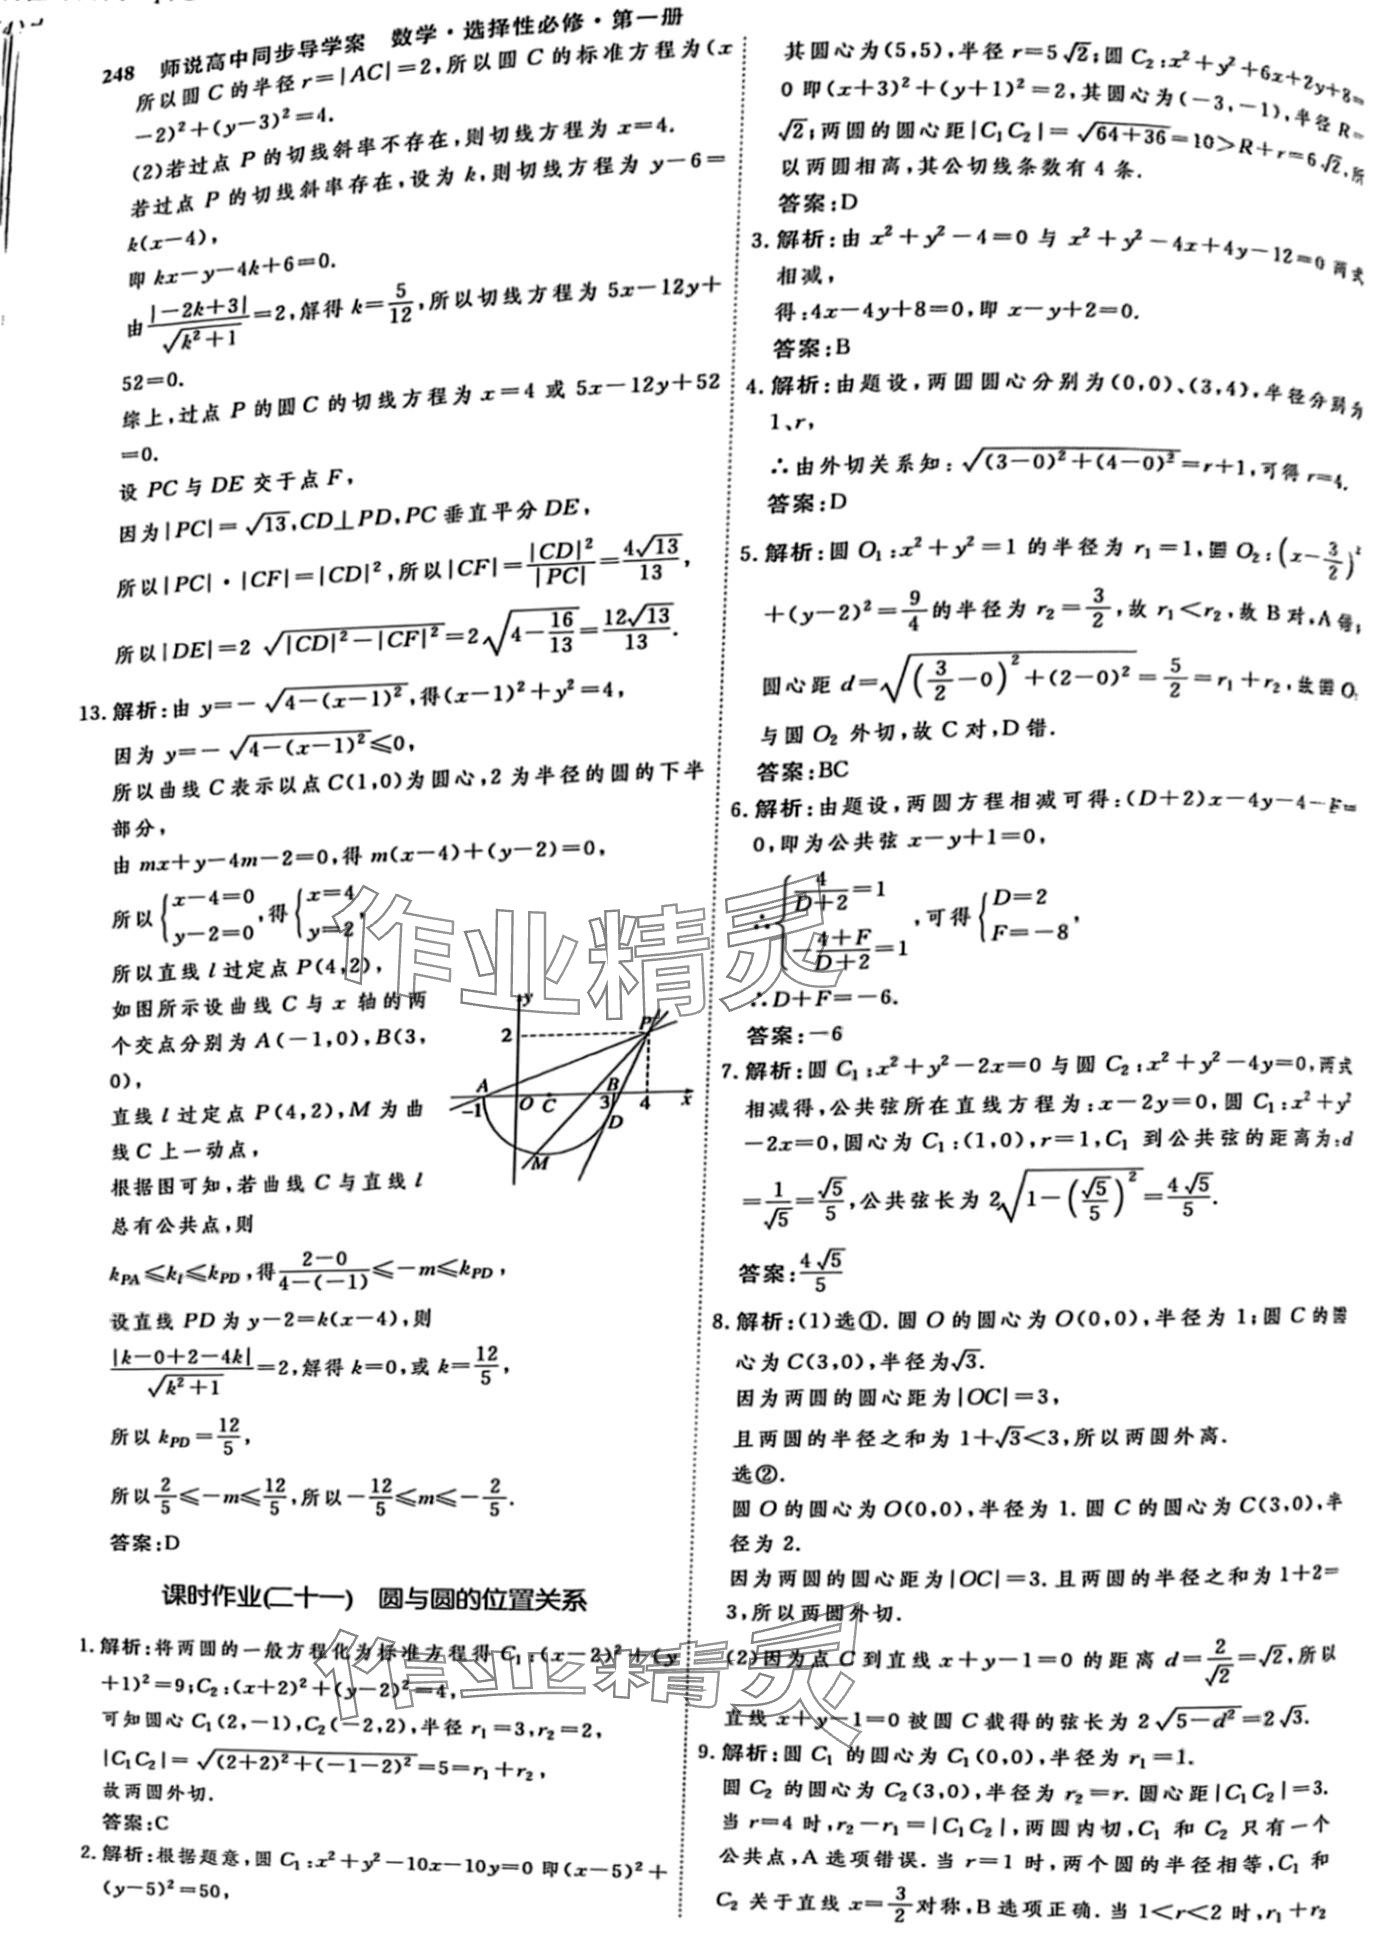 248 师说高中同步导学案 数学·选择性必修·第一册
所以圆 C 的半径 r=|AC|=2,所以圆 C 的标准方程为(x
-2)²+(y-3)²=4.
(2)若过点 P 的切线斜率不存在,则切线方程为 x=4.
若过点 P 的切线斜率存在,设为 k,则切线方程为 y-6=
k(x-4),
即 kx-y-4k+6=0.
由|-2k+3|/√(k²+1)=2,解得 k=5/12,所以切线方程为 5x-12y+
52=0.
综上,过点 P 的圆 C 的切线方程为 x=4 或 5x-12y+52
=0.
设 PC 与 DE 交于点 F,
因为|PC|=√13,CD⊥PD,PC 垂直平分 DE,
所以|PC|·|CF|=|CD|²,所以|CF|=|CD|²/|PC|=4√13/13,
所以|DE|=2√(|CD|²-|CF|²)=2√(4-16/13)=12√13/13.
13.解析:由 y=-√(4-(x-1)²),得(x-1)²+y²=4,
因为 y=-√(4-(x-1)²)≤0,
所以曲线 C 表示以点 C(1,0)为圆心,2 为半径的圆的下半
部分,
由 mx+y-4m-2=0,得 m(x-4)+(y-2)=0,
所以{x-4=0 y-2=0,得{x=4 y=2,
所以直线 l 过定点 P(4,2),
如图所示设曲线 C 与 x 轴的两
个交点分别为 A(-1,0),B(3,
0),
直线 l 过定点 P(4,2),M 为曲
线 C 上一动点,
根据图可知,若曲线 C 与直线 l
总有公共点,则
y
2
P
A
-1
O
C
B
3
4
x
D
M
k_PA≤k_l≤k_PD,得(2-0)/(4-(-1))≤-m≤k_PD,
设直线 PD 为 y-2=k(x-4),则
|k-0+2-4k|/√(k²+1)=2,解得 k=0,或 k=12/5,
所以 k_PD=12/5,
所以2/5≤-m≤12/5,所以-12/5≤m≤-2/5.
答案:D
课时作业(二十一) 圆与圆的位置关系
1.解析:将两圆的一般方程化为标准方程得 C₁:(x-2)²+(y
+1)²=9;C₂:(x+2)²+(y-2)²=4,
可知圆心 C₁(2,-1),C₂(-2,2),半径 r₁=3,r₂=2,
|C₁C₂|=√((2+2)²+(-1-2)²)=5=r₁+r₂,
故两圆外切.
答案:C
2.解析:根据题意,圆 C₁:x²+y²-10x-10y=0 即(x-5)²+
(y-5)²=50,
其圆心为(5,5),半径 r=5√2;圆 C₂:x²+y²+6x+2y+8=
0 即(x+3)²+(y+1)²=2,其圆心为(-3,-1),半径 R=
√2;两圆的圆心距|C₁C₂|=√(64+36)=10>R+r=6√2,所
以两圆相离,其公切线条数有 4 条.
答案:D
3.解析:由 x²+y²-4=0 与 x²+y²-4x+4y-12=0 两式
相减,
得:4x-4y+8=0,即 x-y+2=0.
答案:B
4.解析:由题设,两圆圆心分别为(0,0)、(3,4),半径分别为
1、r,
∴由外切关系知:√((3-0)²+(4-0)²)=r+1,可得 r=4.
答案:D
5.解析:圆 O₁:x²+y²=1 的半径为 r₁=1,圆 O₂:(x-3/2)²
+(y-2)²=9/4的半径为 r₂=3/2,故 r₁<r₂,故 B 对,A 错;
圆心距 d=√((3/2-0)²+(2-0)²)=5/2=r₁+r₂,故圆 O₁
与圆 O₂ 外切,故 C 对,D 错.
答案:BC
6.解析:由题设,两圆方程相减可得:(D+2)x-4y-4-F=
0,即为公共弦 x-y+1=0,
∴{4/(D+2)=1 -(4+F)/(D+2)=1,可得{D=2 F=-8,
∴D+F=-6.
答案:-6
7.解析:圆 C₁:x²+y²-2x=0 与圆 C₂:x²+y²-4y=0,两式
相减得,公共弦所在直线方程为:x-2y=0,圆 C₁:x²+y²
-2x=0,圆心为 C₁:(1,0),r=1,C₁ 到公共弦的距离为:d
=1/√5=√5/5,公共弦长为 2√(1-(√5/5)²)=4√5/5.
答案:4√5/5
8.解析:(1)选①.圆 O 的圆心为 O(0,0),半径为 1;圆 C 的圆
心为 C(3,0),半径为√3.
因为两圆的圆心距为|OC|=3,
且两圆的半径之和为 1+√3<3,所以两圆外离.
选②.
圆 O 的圆心为 O(0,0),半径为 1.圆 C 的圆心为 C(3,0),半
径为 2.
因为两圆的圆心距为|OC|=3.且两圆的半径之和为 1+2=
3,所以两圆外切.
(2)因为点 C 到直线 x+y-1=0 的距离 d=2/√2=√2,所以
直线 x+y-1=0 被圆 C 截得的弦长为 2√(5-d²)=2√3.
9.解析:圆 C₁ 的圆心为 C₁(0,0),半径为 r₁=1.
圆 C₂ 的圆心为 C₂(3,0),半径为 r₂=r.圆心距|C₁C₂|=3.
当 r=4 时,r₂-r₁=|C₁C₂|,两圆内切,C₁ 和 C₂ 只有一个
公共点,A 选项错误.当 r=1 时,两个圆的半径相等,C₁ 和
C₂ 关于直线 x=3/2对称,B 选项正确.当 1<r<2 时,r₁+r₂
作业精灵
作业精灵